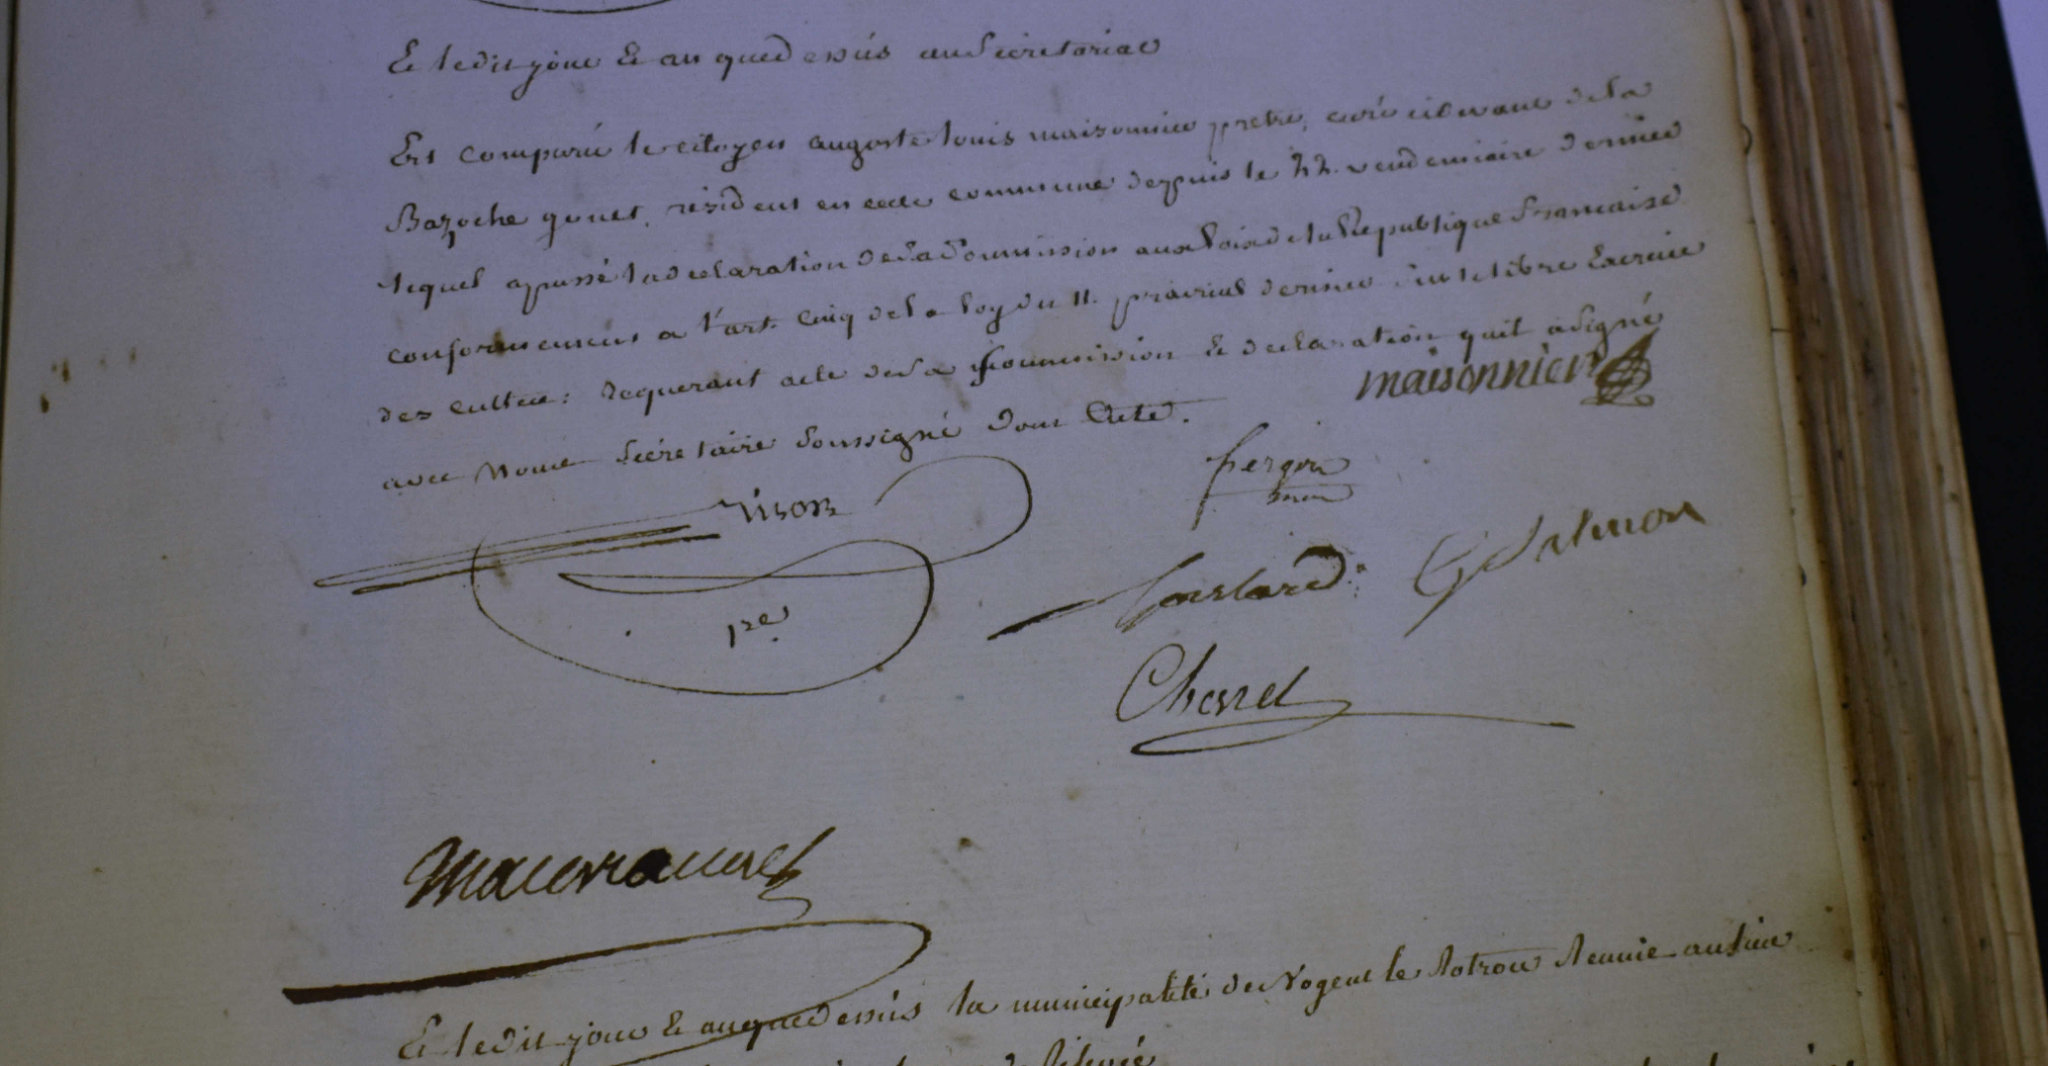 Et ledit jour & an que dessus au Secretariat
Est comparu le citoyen auguste louis maisonnier pretre, curé cidevant de la
Bazoche gouet, résident en cette commune depuis le 22 vendemiaire dernier
lequel a passé la declaration de sa Soumission aux Loix de la Republique francaise
conformement a l'art. cinq de la loy du 11 prairial dernier sur le libre Exercice
des cultes: Requerant acte de sa Soumission & declaration quil a Signé
avec Nous Secretaire Soussigné dont Acte.
maisonnier
Vison
pre
Salmon
Charel
Et ledit jour & an que dessus la municipalité de Nogent le Rotrou Reunie au lieu